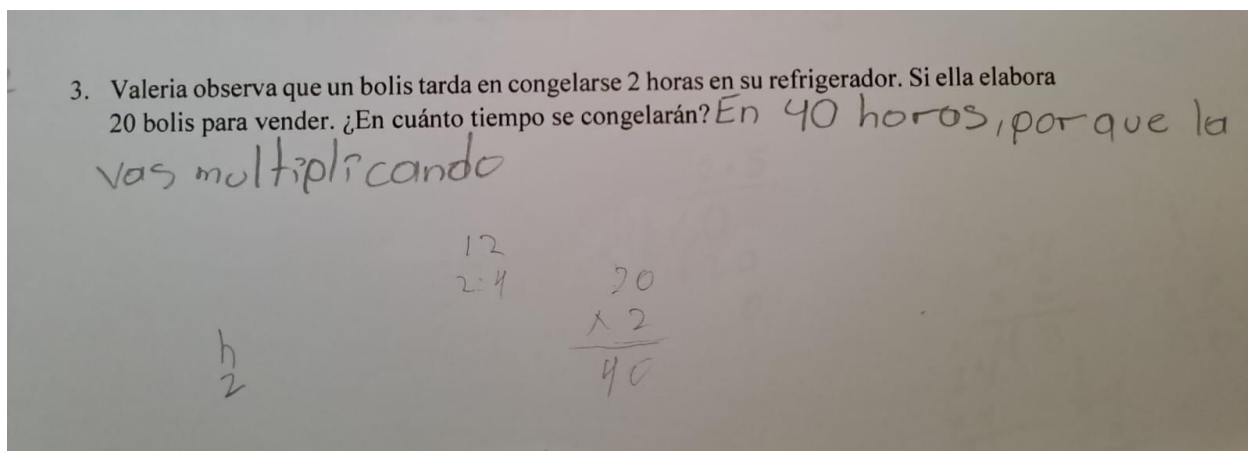 3. Valeria observa que un bolis tarda en congelarse 2 horas en su refrigerador. Si ella elabora
20 bolis para vender. ¿En cuánto tiempo se congelarán? En 40 horas, porque la
vas multiplicando
12
2:4
20
x 2
40
h
2